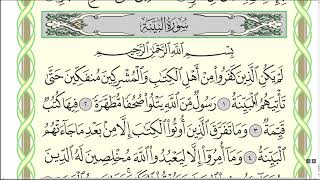 سُورَةُ الْبَيِّنَةِ
بِسْمِ اللَّهِ الرَّحْمَٰنِ الرَّحِيمِ
لَمْ يَكُنِ الَّذِينَ كَفَرُوا مِنْ أَهْلِ الْكِتَابِ وَالْمُشْرِكِينَ مُنفَكِّينَ حَتَّىٰ
تَأْتِيَهُمُ الْبَيِّنَةُ ١ رَسُولٌ مِّنَ اللَّهِ يَتْلُوا صُحُفًا مُّطَهَّرَةً ٢ فِيهَا كُتُبٌ
قَيِّمَةٌ ٣ وَمَا تَفَرَّقَ الَّذِينَ أُوتُوا الْكِتَابَ إِلَّا مِن بَعْدِ مَا جَاءَتْهُمُ
الْبَيِّنَةُ ٤ وَمَا أُمِرُوا إِلَّا لِيَعْبُدُوا اللَّهَ مُخْلِصِينَ لَهُ الدِّينَ